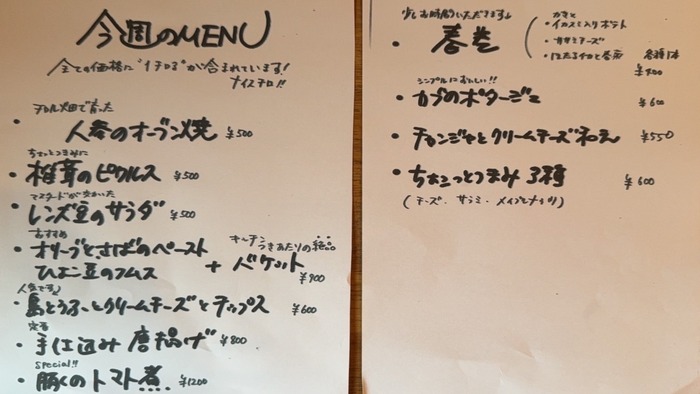 今週のMENU
全ての価格に"イチロる"が含まれています!
ナイスチロ!!
チロル畑で育った
・人参のオーブン焼 ¥500
ちょっとつまみに
・椎茸のピクルス ¥500
マスタードが交かいた
・レンズ豆のサラダ ¥500
おすすめ
・オリーブと、さばのペースト
ひよこ豆のフムス
キッチンつきあたりの絶品
+ バケット
¥900
人気です♪
・島とうふとクリームチーズとチップス ¥600
定番
・手仕込み 唐揚げ ¥800
special!!
・豚くのトマト煮 ¥1200
少しお時間いただきます↓
・春巻
・イカスミ入りポテト
・ササミチーズ
各種1本
¥400
シンプルにおいしい!!
・カブのポタージュ ¥600
・チャンジャとクリームチーズ和え ¥550
・ちょこっとつまみ 3種 ¥600
(チーズ・サラミ・メイプルナッツ)